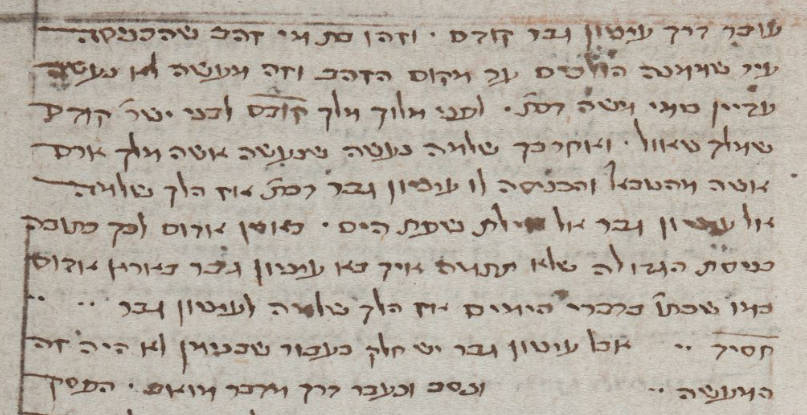 עובר דרך עציון גבר קודם · וזהו בת מי זהב שהכניסה
עיר שממנה הולכים על מקום הזהב וזה מעשה לא נעשה
עדיין בימי משה רבינו · לפני מלוך מלך קודם לבני ישר' קודם
שמלך שאול · ואחר כך שלמה נעשה שנעשה אשה מלך ארם
אשה והכניסה לו עציון גבר אז הלך שלמה
אל עציון גבר אל אילת שפת הים · בארץ אדום לכך כתובה
כניסת הגדולה שלא תתמה איך בא עציון גבר בארץ אדום
כמו שכתו' בדברי הימים אז הלך שלמה לעציון גבר
חסיך ·· אבל עציון גבר יש חלק בעבור שבימין לא היה זה
המעשה ·· ונפן ונעבר דרך מדבר מואב · הפסק